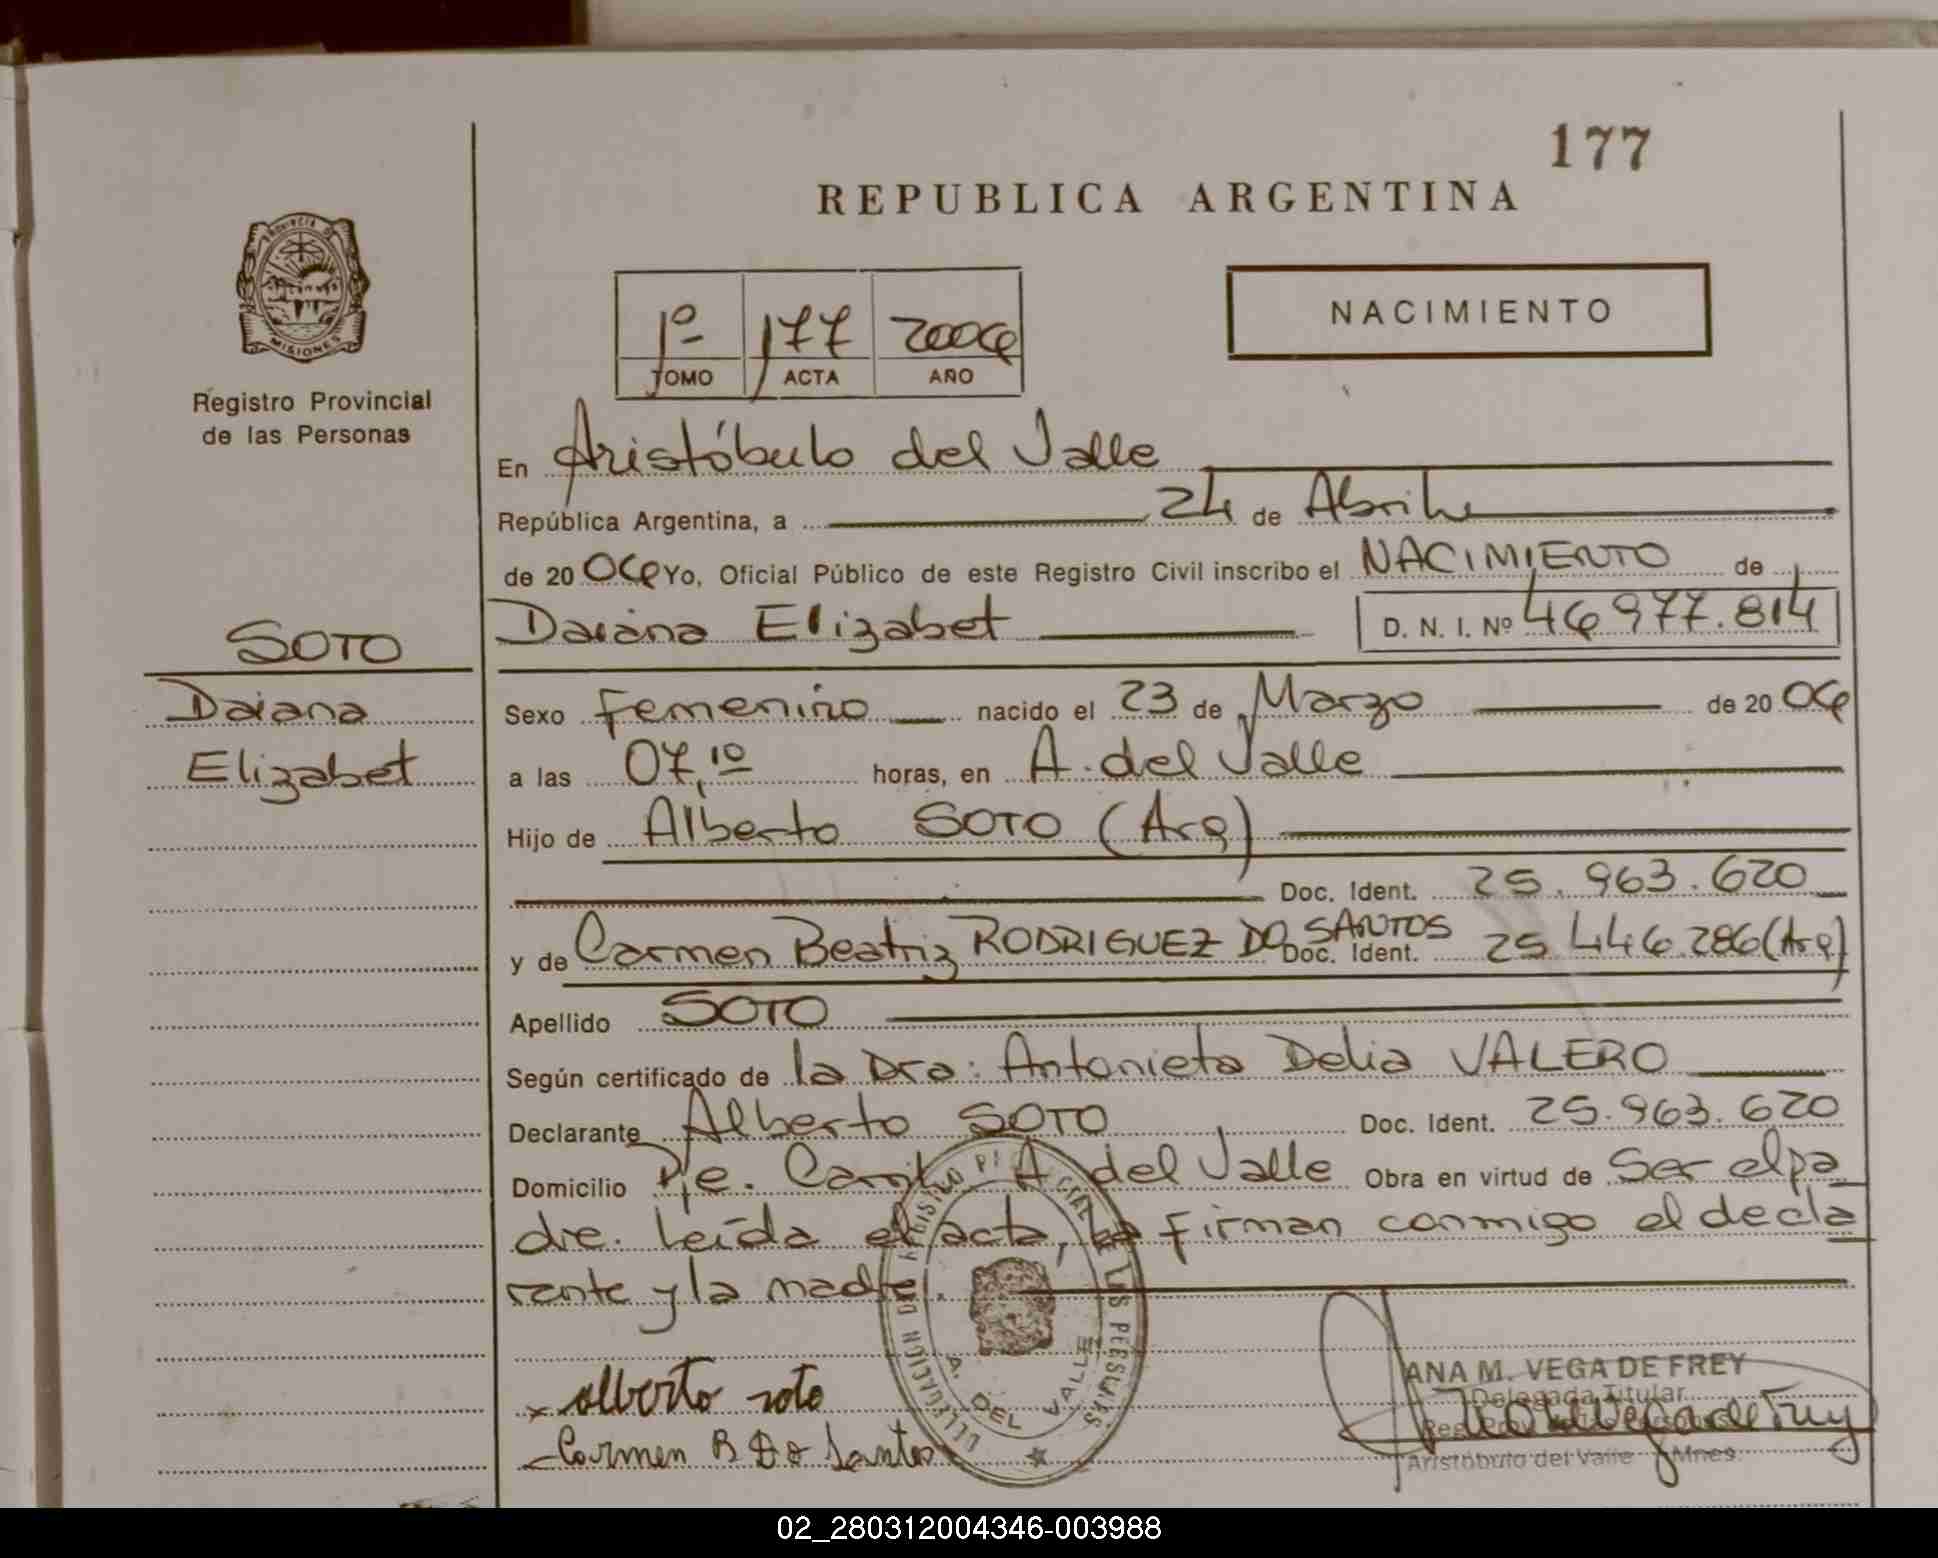 177
REPUBLICA ARGENTINA
PROVINCIA DE
MISIONES
Registro Provincial
de las Personas
1º 177 2006
TOMO ACTA AÑO
NACIMIENTO
En Aristóbulo del Valle
República Argentina, a 24 de Abril
de 2006 Yo, Oficial Público de este Registro Civil inscribo el NACIMIENTO de
Daiana Elizabet D. N. I. Nº 46.977.814
SOTO
Daiana
Elizabet
Sexo Femenino nacido el 23 de Marzo de 2006
a las 07,10 horas, en A. del Valle
Hijo de Alberto SOTO (Arg)
Doc. Ident. 25.963.620
y de Carmen Beatriz RODRIGUEZ DO SANTOS Doc. Ident. 25.446.286 (Arg)
Apellido SOTO
Según certificado de la Dra: Antonieta Delia VALERO
Declarante Alberto SOTO Doc. Ident. 25.963.620
Domicilio Pje. Carrillo A. del Valle Obra en virtud de Ser el pa
dre. Leída el acta, la firman conmigo el decla
rante y la madre.
DELEGACION DEL REGISTRO PROVINCIAL DE LAS PERSONAS
A. DEL VALLE
alberto soto
Carmen B Do Santos
ANA M. VEGA DE FREY
Delegada Titular
Aristóbulo del Valle Mnes.
02_280312004346-003988